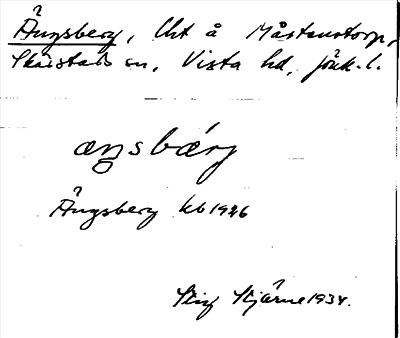 Ängsberg, Lht å Mårtenstorp,
Skärstads sn, Vista hd, Jönk. l.
æŋsbærj
Ängsberg kb 1926
Stig Stjärne 1934.